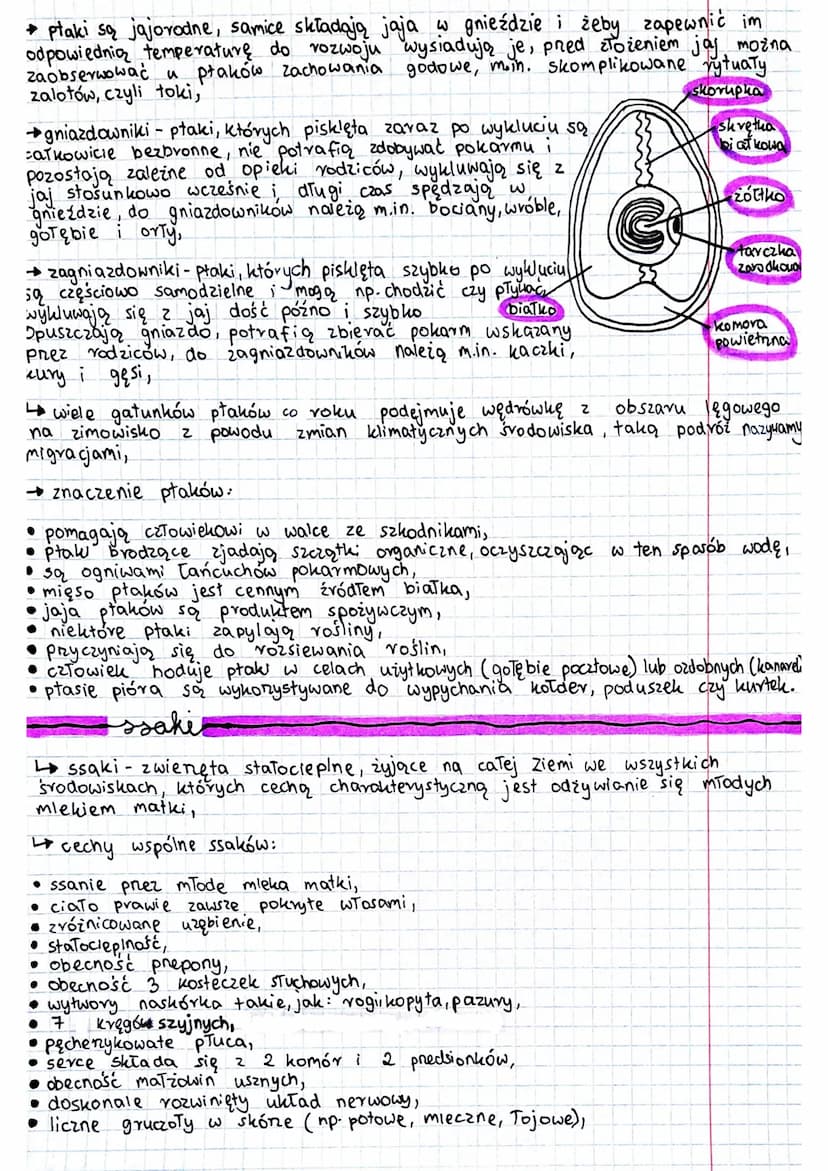 → ptaki są jajorodne, samice składają jaja w gnieździe i żeby zapewnić im
odpowiednią temperaturę do rozwoju wysiadują je, przed złożeniem jaj można
zaobserwować u ptaków zachowania godowe, m.in. skomplikowane rytuały
zalotów, czyli toki,
skorupka
→ gniazdowniki - ptaki, których pisklęta zaraz po wykluciu są
całkowicie bezbronne, nie potrafią zdobywać pokarmu i
pozostają zależne od opieki rodziców, wykluwają się z
jaj stosunkowo wcześnie i długi czas spędzają w
gnieździe, do gniazdowników należą m.in. bociany, wróble,
gołębie i orły,
skrętka
białkowa
żółtko
tarczka
zarodkowa
→ zagniazdowniki - ptaki, których pisklęta szybko po wykluciu
są częściowo samodzielne i mogą np. chodzić czy pływać,
wykluwają się z jaj dość późno i szybko
opuszczają gniazdo, potrafią zbierać pokarm wskazany
przez rodziców, do zagniazdowników należą m.in. kaczki,
kury i gęsi,
białko
komora
powietrzna
↳ wiele gatunków ptaków co roku podejmuje wędrówkę z obszaru lęgowego
na zimowisko z powodu zmian klimatycznych środowiska, taką podróż nazywamy
migracjami,
→ znaczenie ptaków:
• pomagają człowiekowi w walce ze szkodnikami,
• ptaki brodzące zjadają szczątki organiczne, oczyszczając w ten sposób wodę,
• są ogniwami łańcuchów pokarmowych,
• mięso ptaków jest cennym źródłem białka,
• jaja ptaków są produktem spożywczym,
• niektóre ptaki zapylają rośliny,
• przyczyniają się do rozsiewania roślin,
• człowiek hoduje ptaki w celach użytkowych (gołębie pocztowe) lub ozdobnych (kanarei
• ptasie pióra są wykorzystywane do wypychania kołder, poduszek czy kurtek.
ssaki
↳ ssaki - zwierzęta stałocieplne, żyjące na całej Ziemi we wszystkich
środowiskach, których cechą charakterystyczną jest odżywianie się młodych
mlekiem matki,
↳ cechy wspólne ssaków:
• ssanie przez młode mleka matki,
• ciało prawie zawsze pokryte włosami,
• zróżnicowane uzębienie,
• stałocieplność,
• obecność przepony,
• obecność 3 kosteczek słuchowych,
• wytwory naskórka takie, jak: rogi, kopyta, pazury,
• 7 kręgów szyjnych,
• pęcherzykowate płuca,
• serce składa się z 2 komór i 2 przedsionków,
• obecność małżowin usznych,
• doskonale rozwinięty układ nerwowy,
• liczne gruczoły w skórze (np. potowe, mleczne, łojowe),